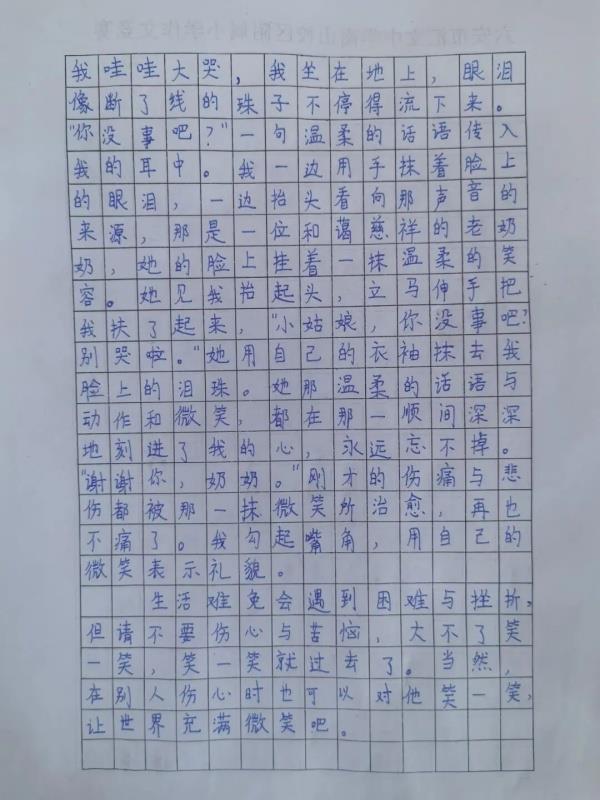 我哇哇大哭，我坐在地上，眼泪
像断了线的珠子不停得流下来。
“你没事吧？”一句温柔的话语传入
我的耳中。我一边用手抹着脸上
的眼泪，一边抬头看向那声音的
来源，那是一位和蔼慈祥的老奶
奶，她的脸上挂着一抹温柔的笑
容。她见我抬起头，立马伸手把
我扶了起来，“小姑娘，你没事吧？
别哭啦。”她用自己的衣袖抹去我
脸上的泪珠。她那温柔的话语与
动作和微笑，都在那一顺间深深
地刻进了我的心，永远忘不掉。
“谢谢你，奶奶。”刚才的伤痛与悲
伤都被那一抹微笑所治愈，再也
不痛了。我勾起嘴角，用自己的
微笑表示礼貌。
生活难免会遇到困难与挫折，
但请不要伤心与苦恼，大不了笑
一笑，笑一笑就过去了。当然，
在别人伤心时也可以对他笑一笑，
让世界充满微笑吧。